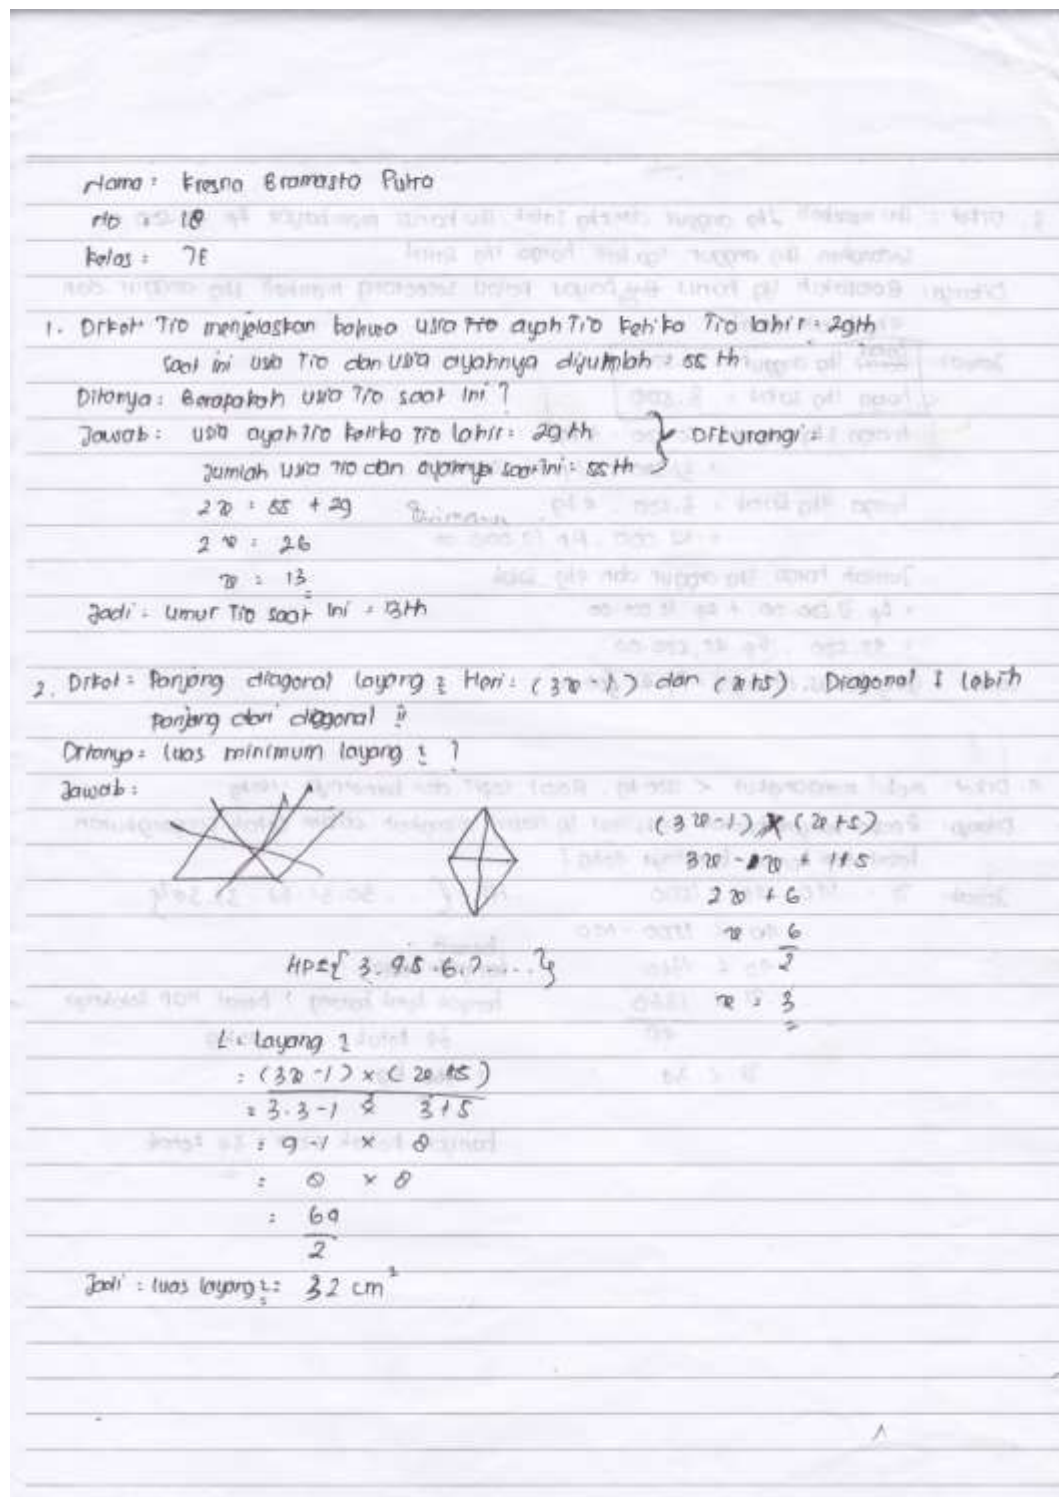 Nama : Kresna Bramasto Putro
No : 18
Kelas : 7E
1. Diket : Tio menjelaskan bahwa usia ayah Tio ketika Tio lahir = 29th
saat ini usia Tio dan usia ayahnya dijumlah = 55 th
Ditanya : Berapakah usia Tio saat ini ?
Jawab : usia ayah Tio ketika Tio lahir = 29 th } Dikurangi =
Jumlah usia Tio dan ayahnya saat ini = 55 th
2x = 55 + 29
2x = 26
x = 13
Jadi : umur Tio saat ini = 13th
2. Diket = Panjang diagonal layang 2 Heri = (3x-1) dan (x+5) Diagonal I lebih
panjang dari diagonal II
Ditanya = luas minimum layang 2 ?
Jawab :
(3x-1) (x+5)
3x - x + 1+5
2x + 6
x 6
2
x = 3
HP = { 3. 4.5. 6.7 ... }
L = layang 2
= (3x-1) x (x+5)
2
= 3.3-1 x 3+5
= 9-1 x 8
= 8 x 8
= 64
2
Jadi : luas layang 2 = 32 cm²